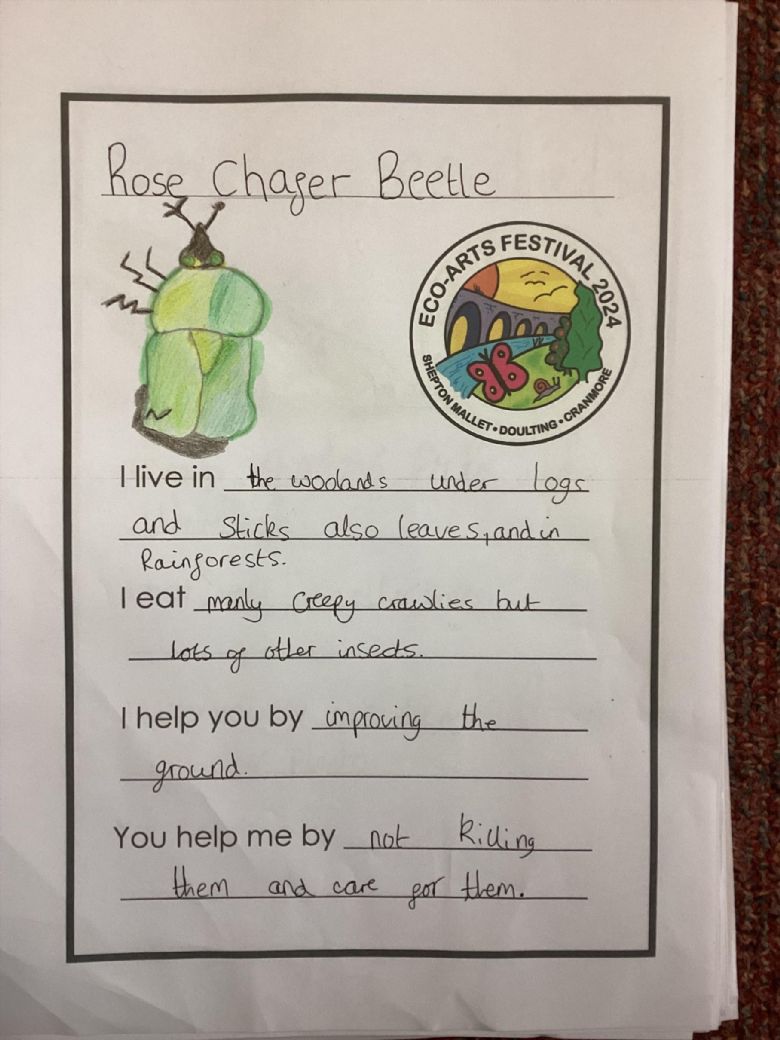 Rose Chafer Beetle
ECO-ARTS FESTIVAL 2024
SHEPTON MALLET • DOULTING • CRANMORE
I live in the woolands under logs
and Sticks also leaves, and in
Rainforests.
I eat manly Creepy crawlies but
lots of other insects.
I help you by improving the
ground.
You help me by not Killing
them and care for them.